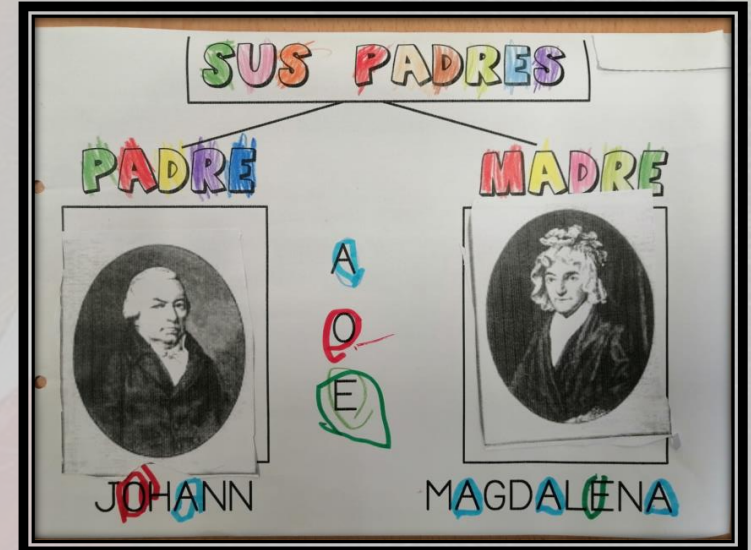 SUS PADRES
PADRE
MADRE
A
O
E
JOHANN
MAGDALENA